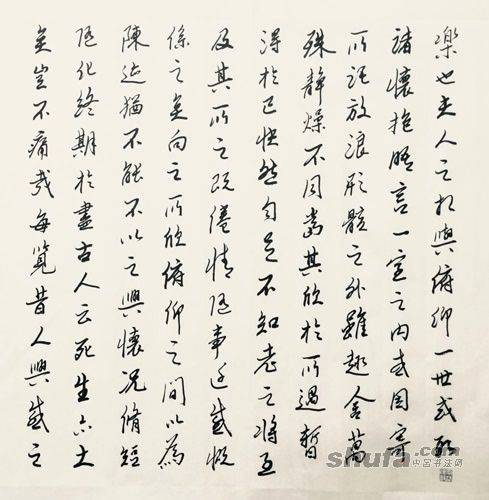 樂也夫人之相與俯仰一世或取
諸懷抱晤言一室之內或因寄
所託放浪形骸之外雖趣舍萬
殊靜躁不同當其欣於所遇暫
得於己快然自足不知老之將至
及其所之既倦情隨事遷感慨
係之矣向之所欣俯仰之間以為
陳迹猶不能不以之興懷況脩短
隨化終期於盡古人云死生亦大
矣豈不痛哉每覽昔人興感之
shufa.com
中国书法网